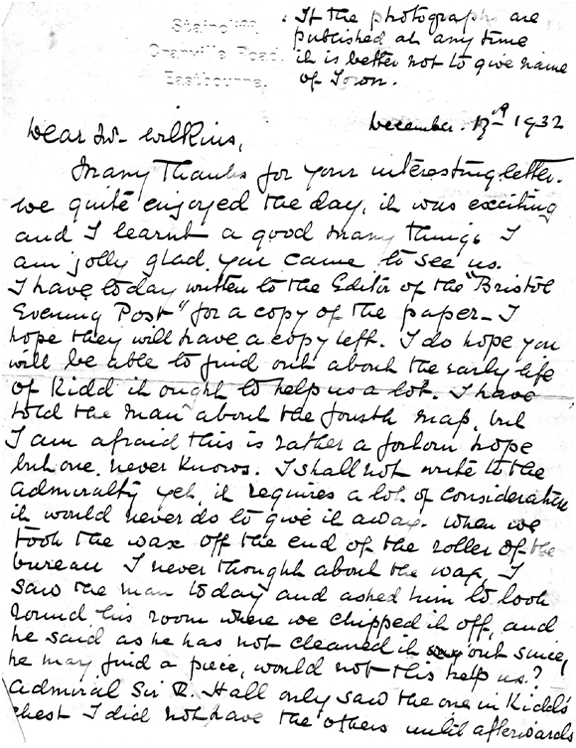 Staincliff,
Granville Road,
Eastbourne.
. If the photographs are
published at any time
it is better not to give name
of Town.
December. 13th 1932
Dear Mr Wilkins,
Many thanks for your interesting letter.
we quite enjoyed the day, it was exciting
and I learnt a good many things I
am jolly glad you came to see us.
I have today written to the Editor of the "Bristol
Evening Post" for a copy of the paper - I
hope they will have a copy left. I do hope you
will be able to find out about the early life
of Kidd it ought to help us a lot. I have
told the man about the fourth map, but
I am afraid this is rather a forlorn hope
but one never knows. I shall not write to the
Admiralty yet, it requires a lot of consideration
it would never do to give it away. when we
took the wax off the end of the roller of the
bureau I never thought about the wax, I
saw the man today and asked him to look
round his room where we chipped it off, and
he said as he has not cleaned it out since,
he may find a piece, would not this help us?
Admiral Sir R. Hall only saw the one in Kidd's
chest I did not have the others until afterwards